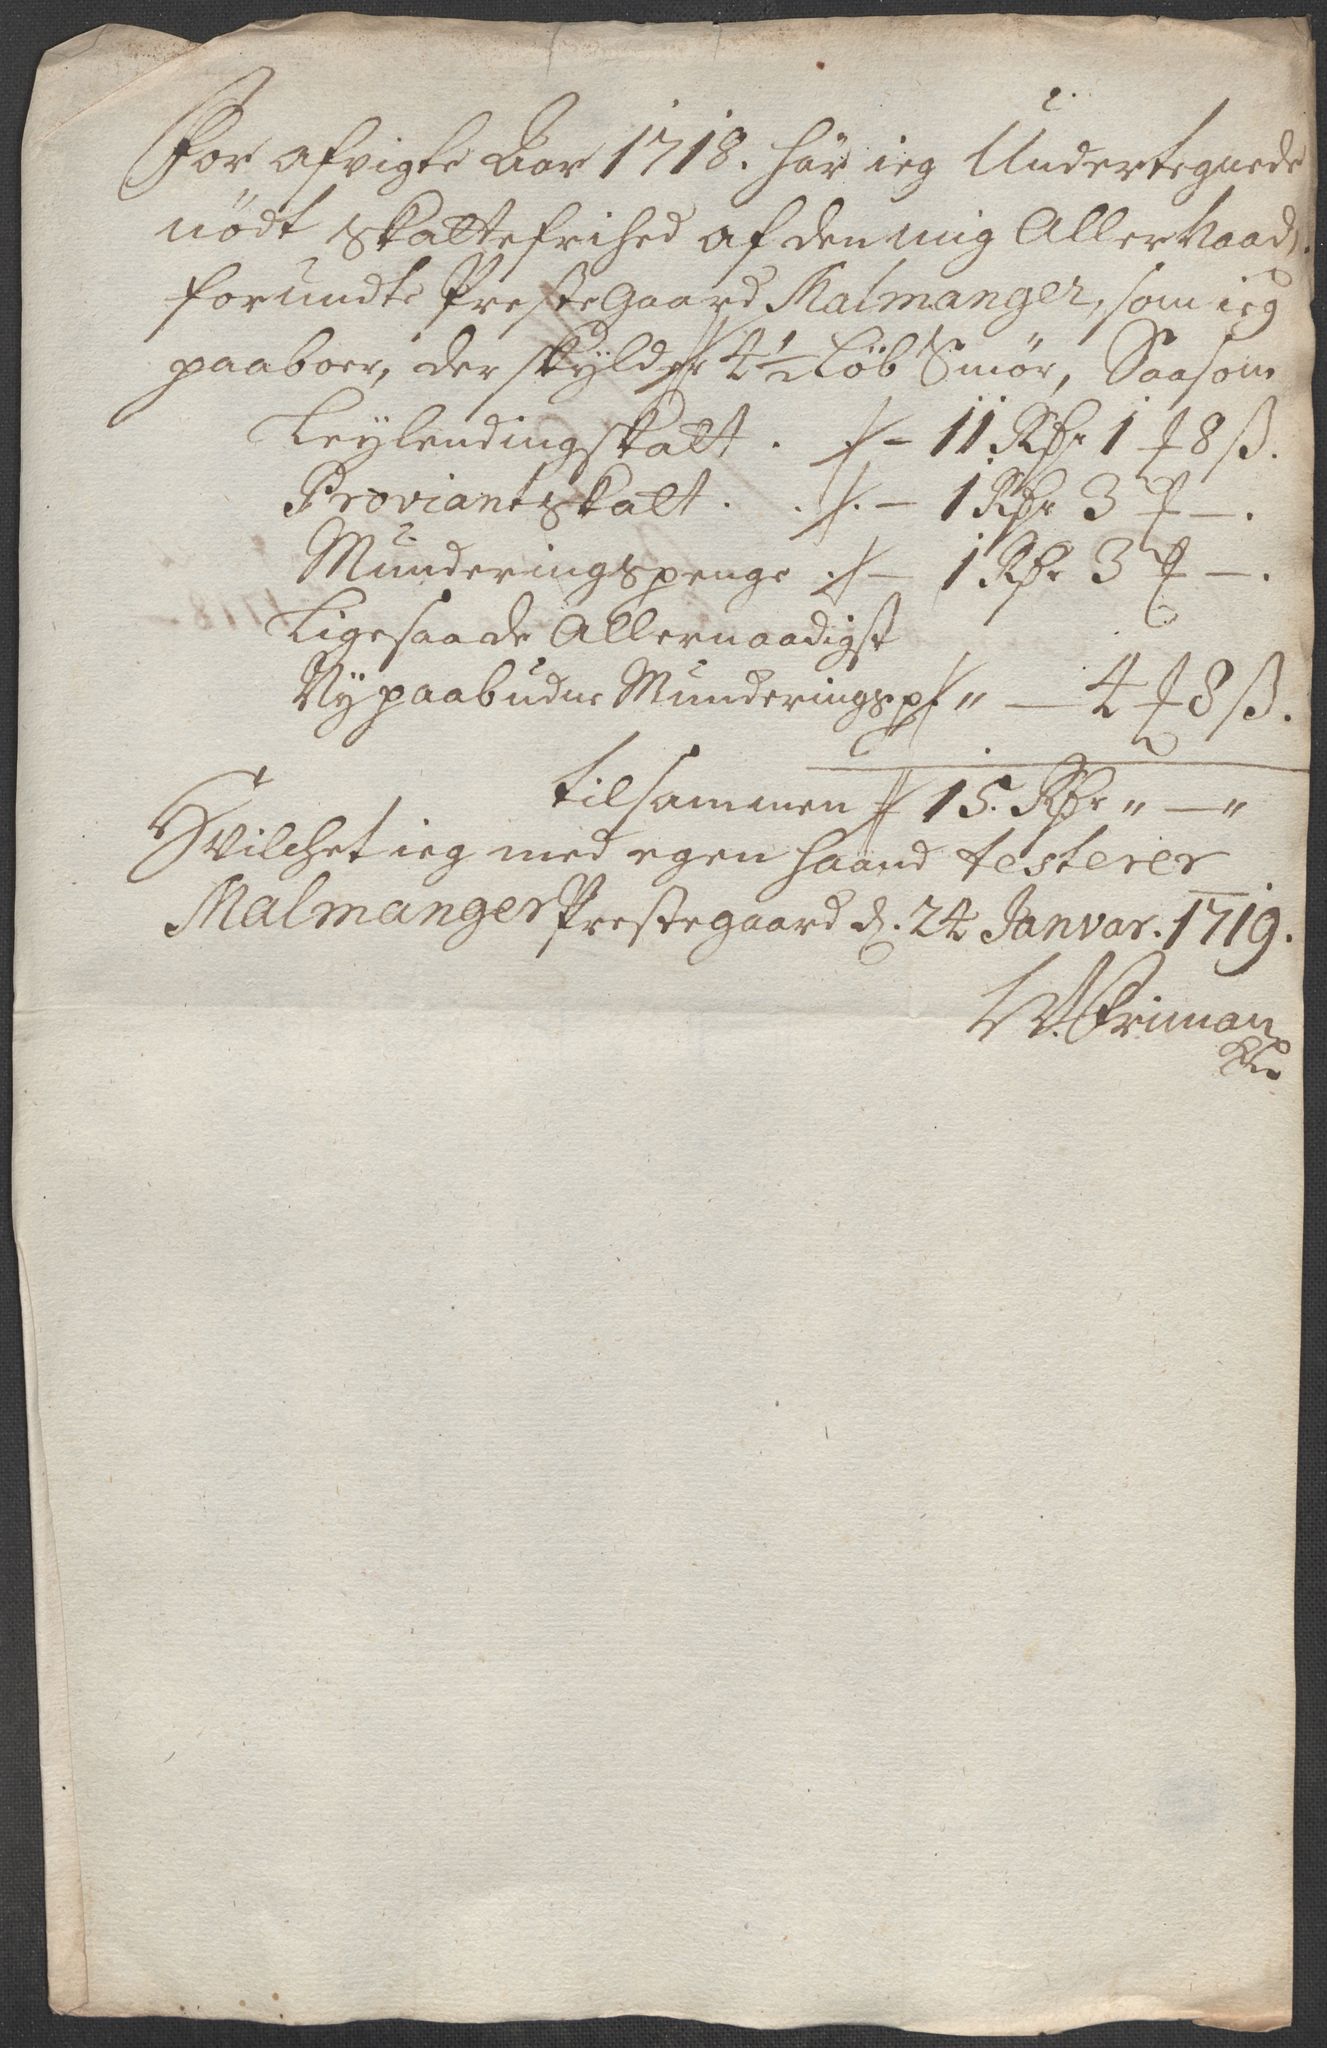 For afvigte Aar 1718. här ieg Undertegnede
nödt skattefrihed af den mig Aller Naad.
forundte PresteGaard Malmanger, som ieg
paaboer, der skylder 4 1/2 Löb Smör, Saasom
Leylendingskatt . – 11 Rdr 1 ₰ 8 ß.
Proviantskatt . . – 1 Rdr 3 ₰ – .
Munderingspenge . – 1 Rdr 3 ₰ – .
Ligesaa de Allernaadigst
Ny paabudne Munderingsp: " – 4 ₰ 8 ß.
tilsammen 15. Rdr " – "
Hvilchet ieg med egen haand testerer
Malmanger Prestegaard d. 24 Januar. 1719.
W. Friman